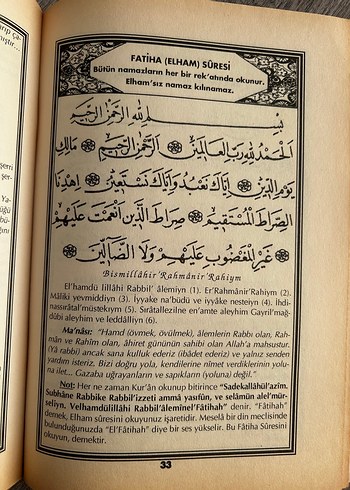 FATİHA (ELHAM) SÛRESİ
Bütün namazların her bir rek'atında okunur.
Elham'sız namaz kılınamaz.
بِسْمِ اللهِ الرَّحْمٰنِ الرَّحِيمِ
اَلْحَمْدُ لِلّٰهِ رَبِّ الْعَالَمِينَ ۞ اَلرَّحْمٰنِ الرَّحِيمِ ۞ مَالِكِ
يَوْمِ الدِّينِ ۞ اِيَّاكَ نَعْبُدُ وَاِيَّاكَ نَسْتَعِينُ ۞ اِهْدِنَا
الصِّرَاطَ الْمُسْتَقِيمَ ۞ صِرَاطَ الَّذِينَ اَنْعَمْتَ عَلَيْهِمْ
۞ غَيْرِ الْمَغْضُوبِ عَلَيْهِمْ وَلَا الضَّالِّينَ ۞
Bismillâhir'Rahmânir'Rahiym
El'hamdü lillâhi Rabbil' âlemiyn (1). Er'Rahmânir'Rahiym (2).
Mâliki yevmiddiyn (3). İyyake na'büdü ve iyyâke nesteiyn (4). İhdi-
nassırâtal'müstekıym (5). Sırâtallezîlne en'amte aleyhim Gayril'mağ-
dûbi aleyhim ve leddâlliyn (6).
Ma'nâsı: "Hamd (övmek, övülmek), âlemlerin Rabbı olan, Rah-
mân ve Rahîm olan, âhiret gününün sahibi olan Allah'a mahsustur.
(Yâ rabbi) ancak sana kulluk ederiz (ibâdet ederiz) ve yalnız senden
yardım isteriz. Bizi doğru yola, kendilerine nîmet verdiklerinin yolu-
na ilet... Gazaba uğrayanların ve sapıkların (yoluna) değil."
Not: Her ne zaman Kur'ân okunup bitirince "Sadekallâhül'azîm.
Subhâne Rabbike Rabbil'izzeti ammâ yasıfûn, ve selâmün alel'mür-
seliyn. Velhamdülillâhi Rabbil'âlemînel'Fâtihah" denir. "Fâtihah"
demek, Elham sûresini okuyunuz işaretidir. Meselâ bir din meclisinde
bulunduğunuzda "El'Fâtihah" diye bir ses yükselir. Bu Fâtiha Sûresini
okuyun, demektir.
33